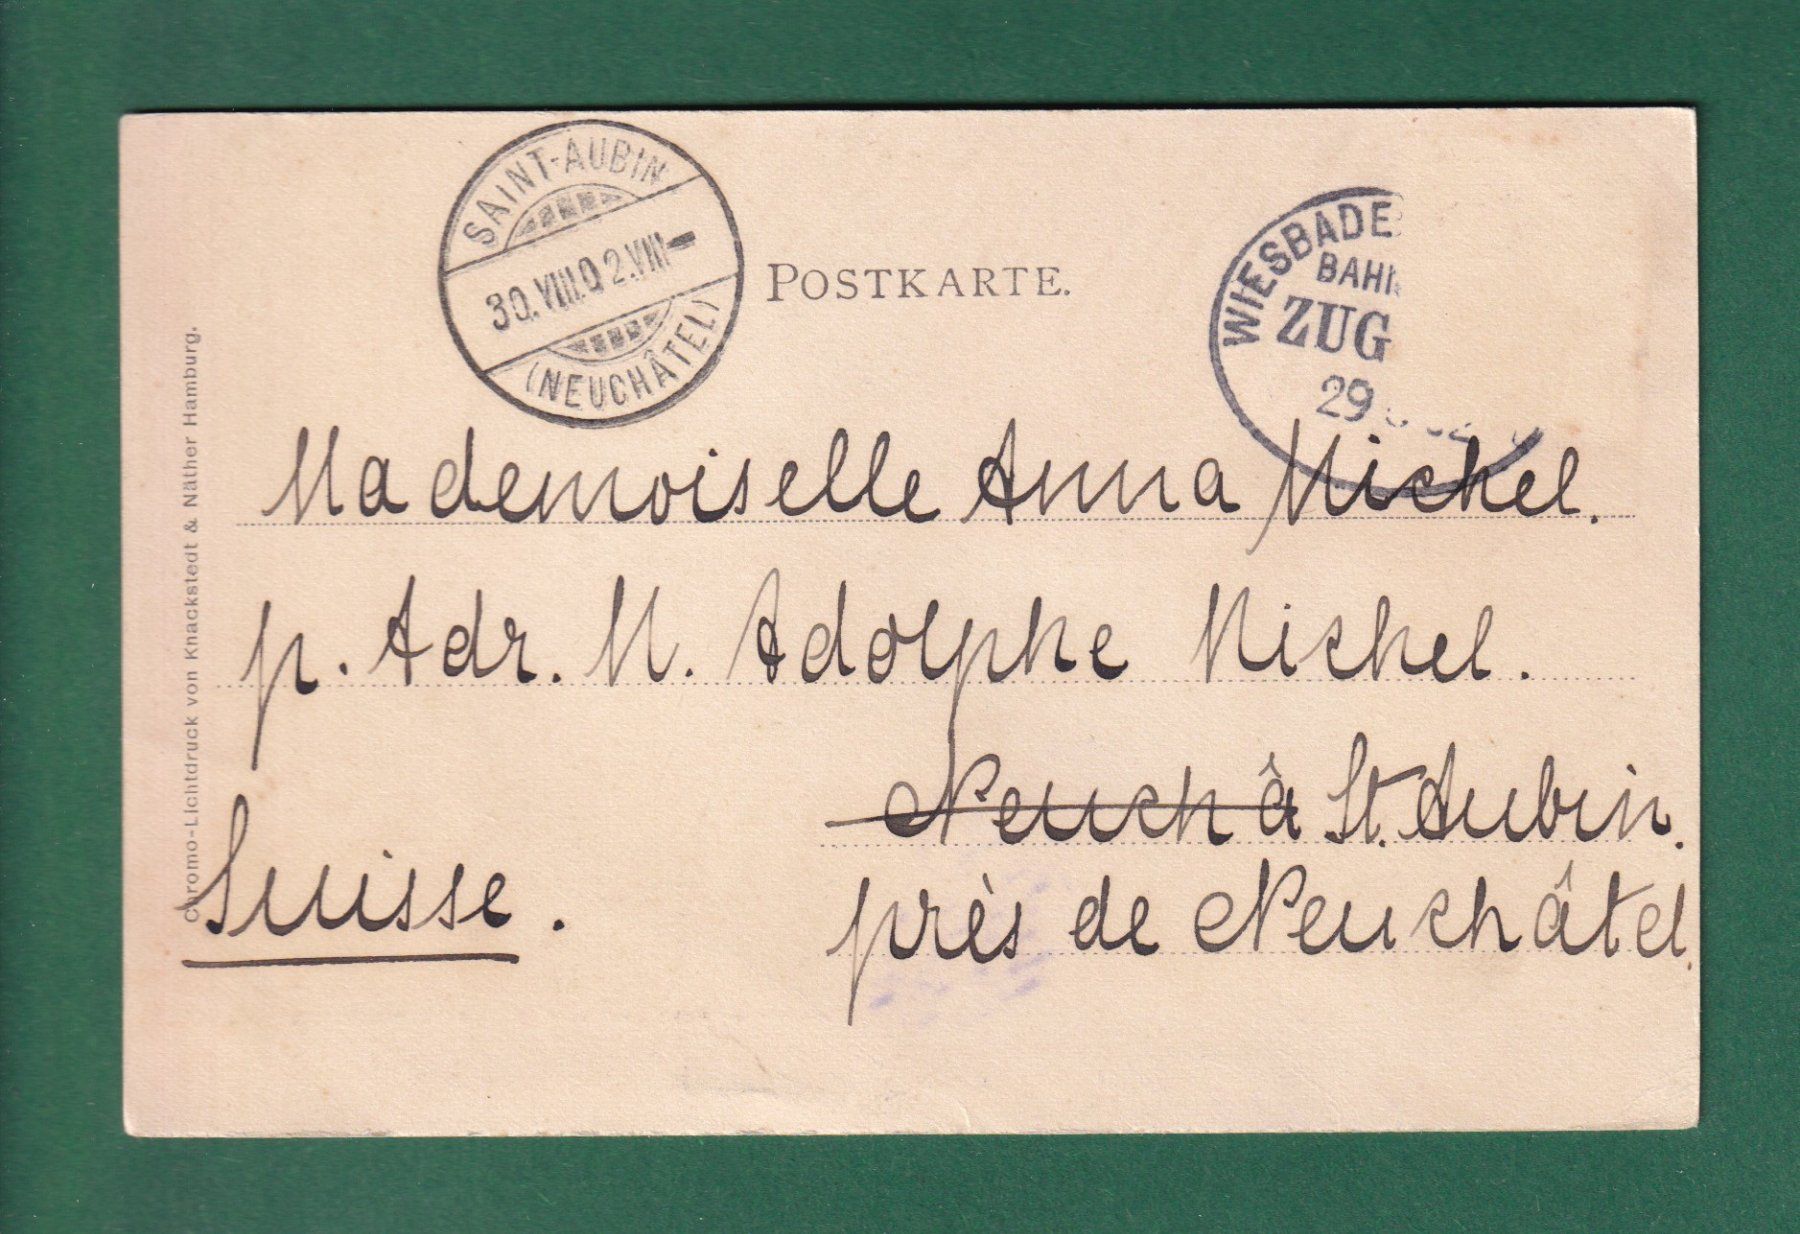 SAINT-AUBIN
30.VIII.02.VIII-
(NEUCHÂTEL)
POSTKARTE.
WIESBADE
BAHN
ZUG
29
Mademoiselle Anna Michel.
p. Adr. M. Adolphe Michel.
Neuchâ St. Aubin.
près de Neuchâtel.
Suisse.
Chromo-Lichtdruck von Knackstedt & Näther Hamburg.